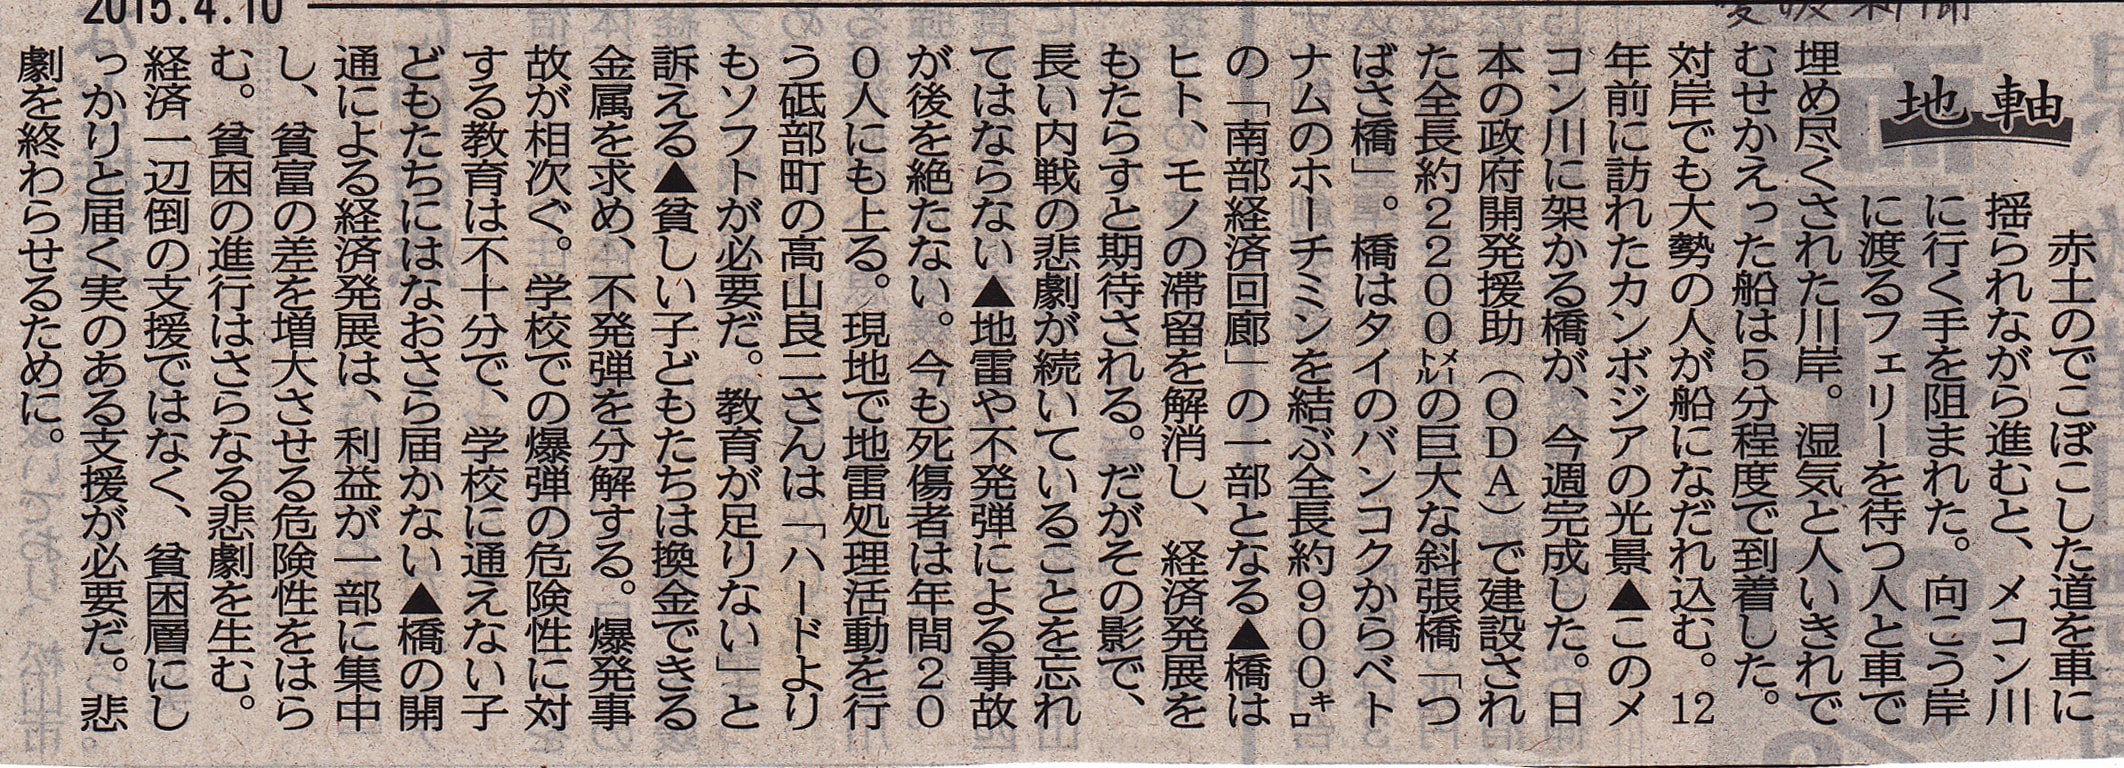 2015.4.10
愛媛新聞
地軸
赤土のでこぼこした道を車に
揺られながら進むと、メコン川
に行く手を阻まれた。向こう岸
に渡るフェリーを待つ人と車で
埋め尽くされた川岸。湿気と人いきれで
むせかえった船は5分程度で到着した。
対岸でも大勢の人が船になだれ込む。12
年前に訪れたカンボジアの光景▲このメ
コン川に架かる橋が、今週完成した。日
本の政府開発援助（ODA）で建設され
た全長約2200㍍の巨大な斜張橋「つ
ばさ橋」。橋はタイのバンコクからベト
ナムのホーチミンを結ぶ全長約900㌔
の「南部経済回廊」の一部となる▲橋は
ヒト、モノの滞留を解消し、経済発展を
もたらすと期待される。だがその影で、
長い内戦の悲劇が続いていることを忘れ
てはならない▲地雷や不発弾による事故
が後を絶たない。今も死傷者は年間20
0人にも上る。現地で地雷処理活動を行
う砥部町の高山良二さんは「ハードより
もソフトが必要だ。教育が足りない」と
訴える▲貧しい子どもたちは換金できる
金属を求め、不発弾を分解する。爆発事
故が相次ぐ。学校での爆弾の危険性に対
する教育は不十分で、学校に通えない子
どもたちにはなおさら届かない▲橋の開
通による経済発展は、利益が一部に集中
し、貧富の差を増大させる危険性をはら
む。貧困の進行はさらなる悲劇を生む。
経済一辺倒の支援ではなく、貧困層にし
っかりと届く実のある支援が必要だ。悲
劇を終わらせるために。